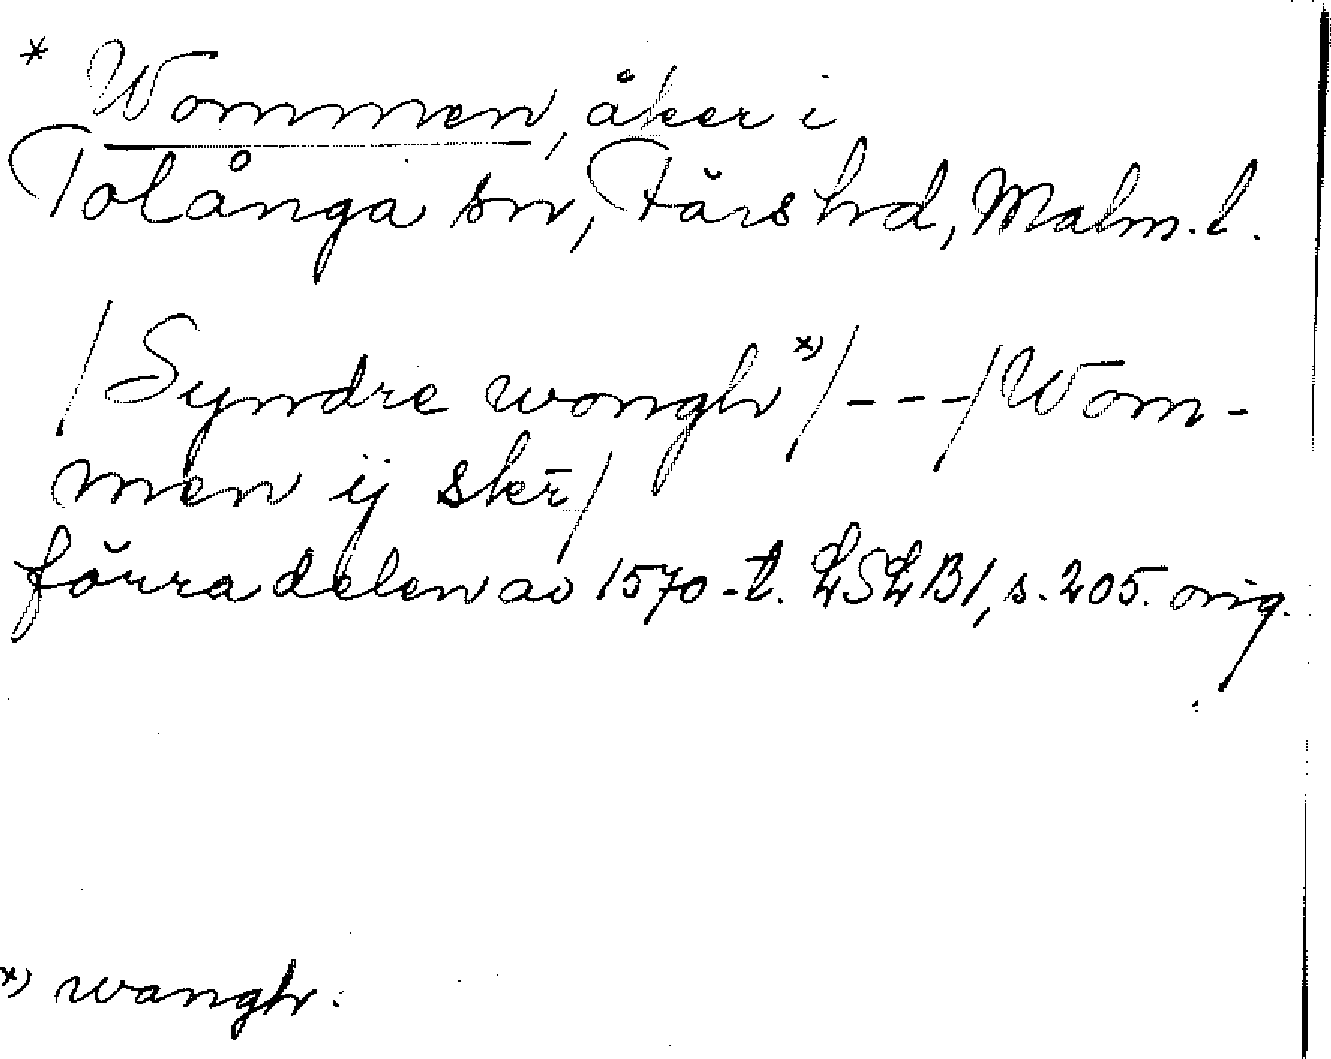 * Wommen, åker i
Tolånga sn, Färs hd, Malm. l.
/Syndre wongh *)/---/Wom-
men ij skē/
förra delen av 1570-t. LSLB1, s. 205. orig.
*) wangh.